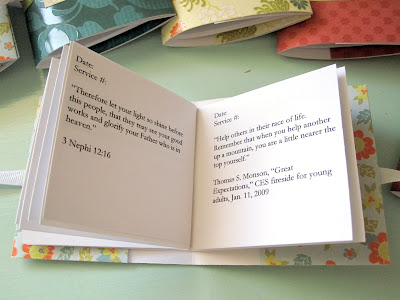 Date:
Service #:
"Therefore let your light so shine before
this people, that they may see your good
works and glorify your Father who is in
heaven."
3 Nephi 12:16
Date:
Service #:
"Help others in their race of life.
Remember that when you help another
up a mountain, you are a little nearer the
top yourself."
Thomas S. Monson, "Great
Expectations," CES fireside for young
adults, Jan. 11, 2009